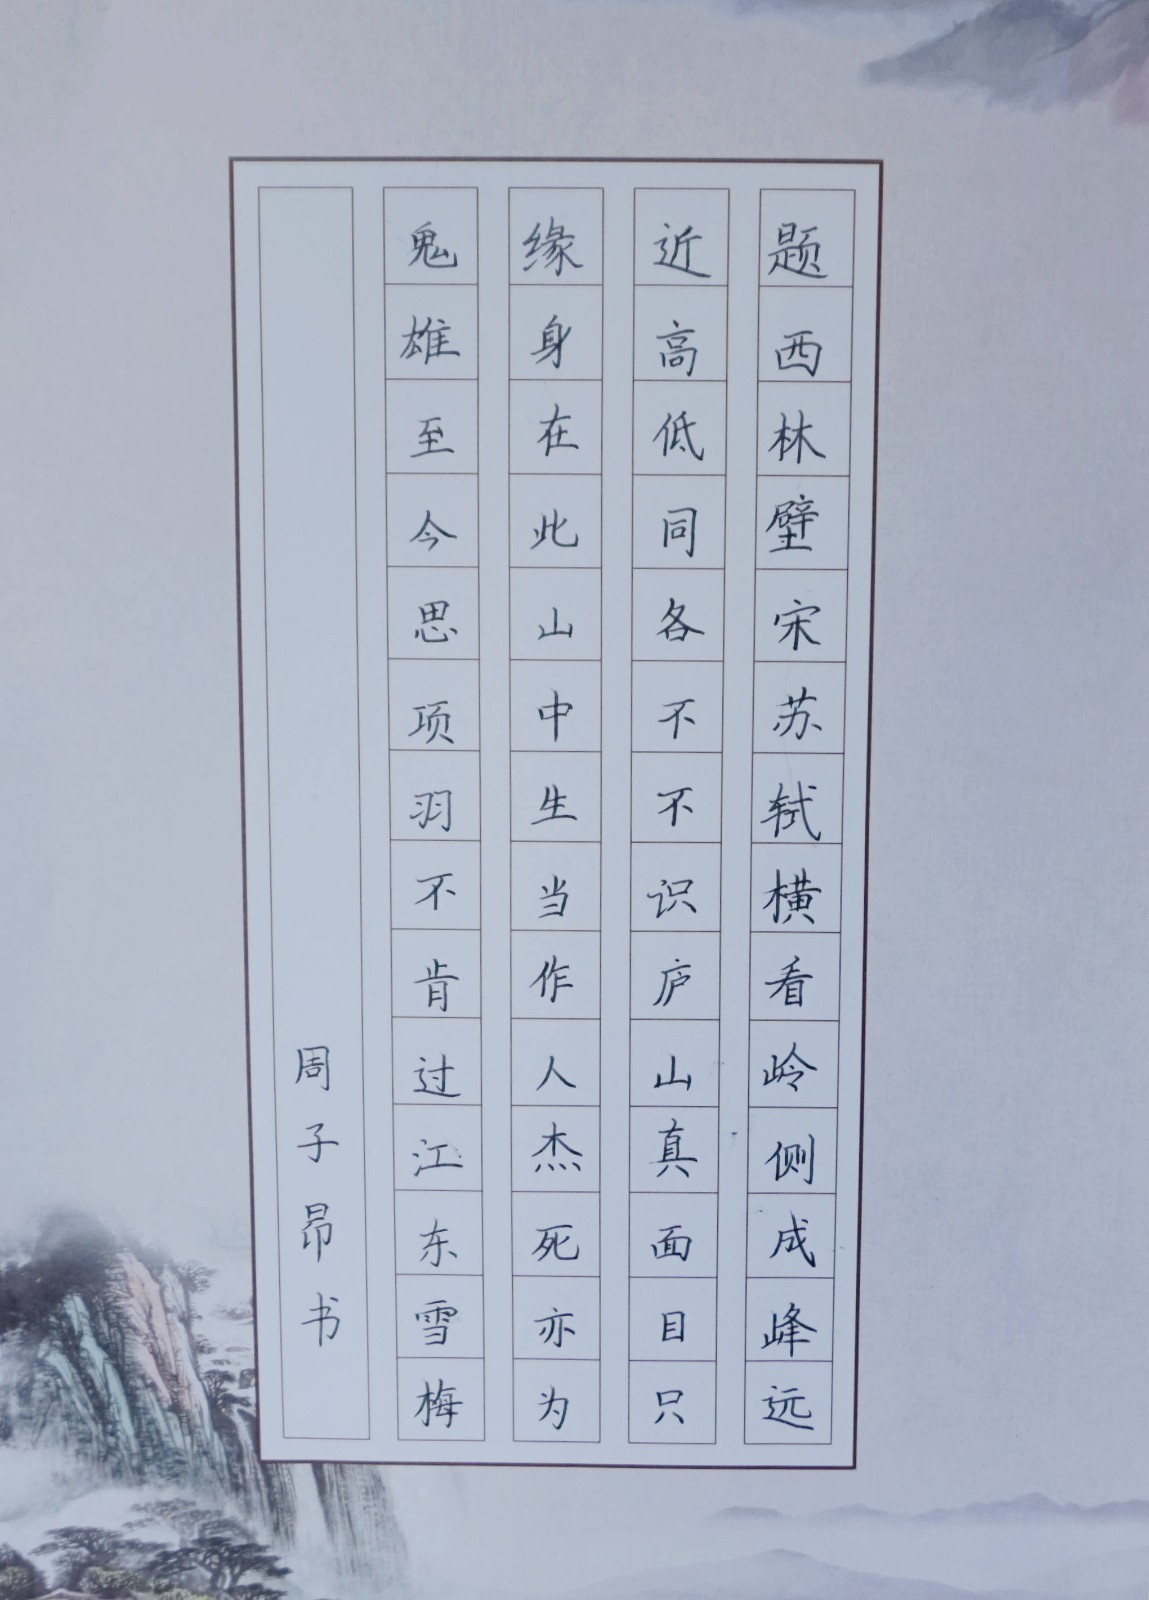 题西林壁宋苏轼横看岭侧成峰远
近高低同各不不识庐山真面目只
缘身在此山中生当作人杰死亦为
鬼雄至今思项羽不肯过江东雪梅
周子昂书